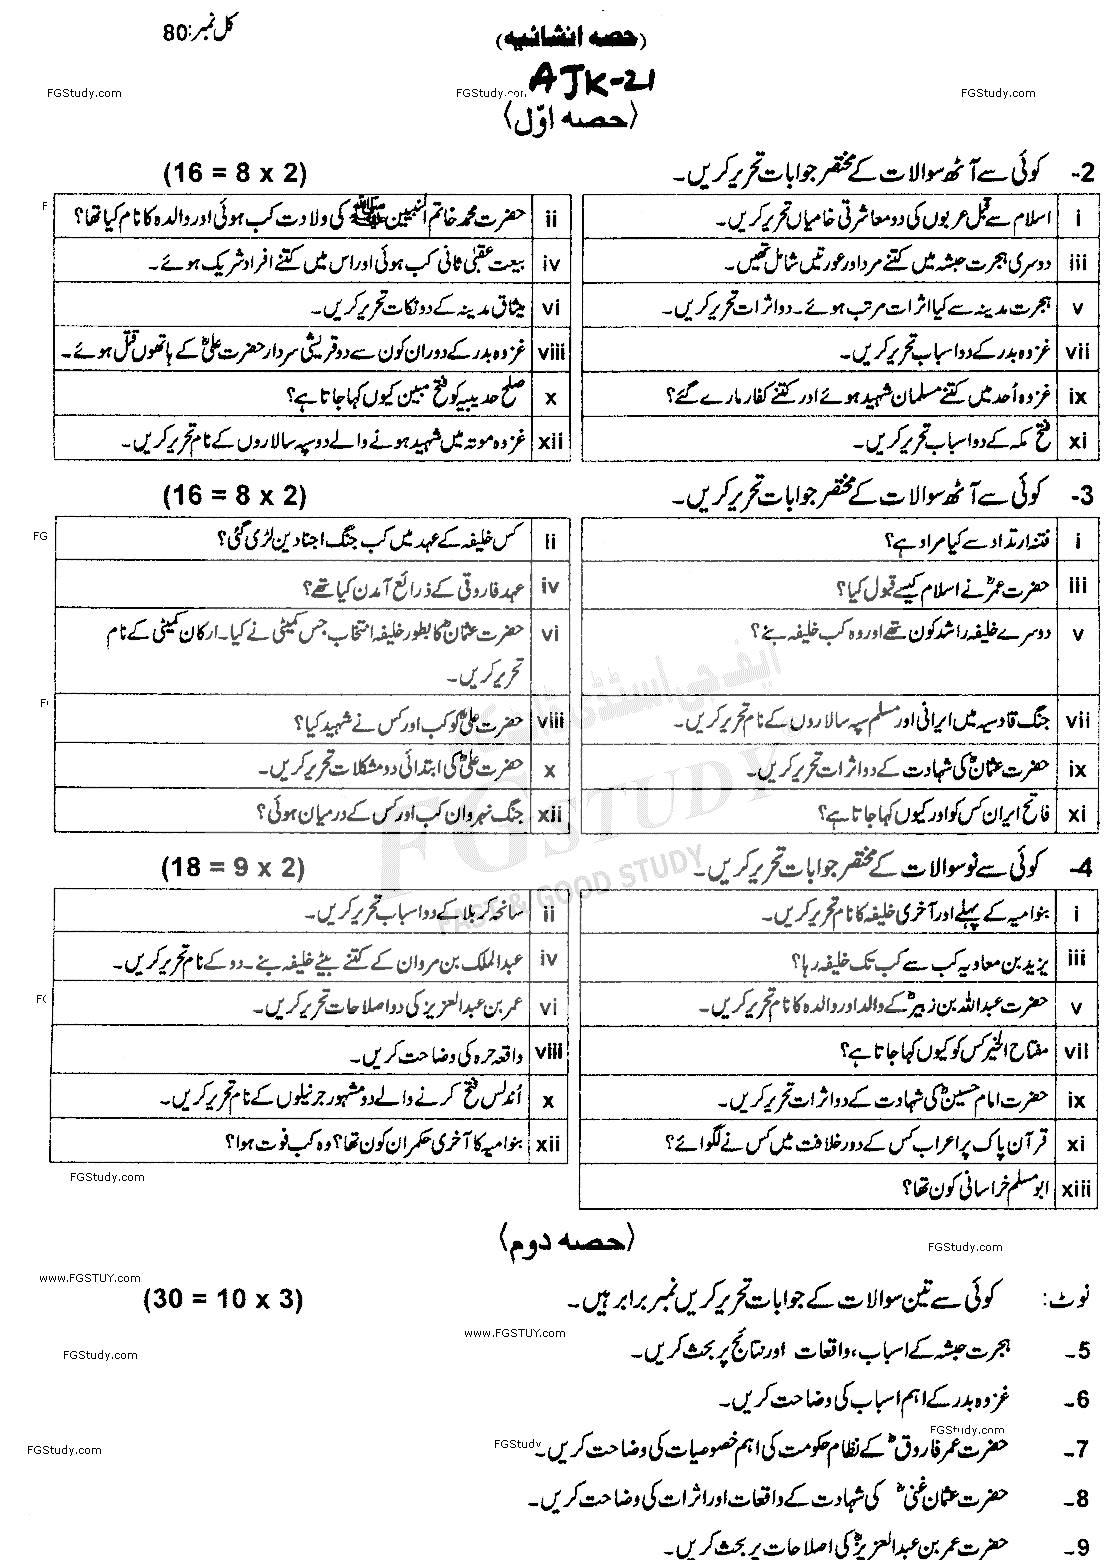 (حصہ انشائیہ)
کل نمبر:80
AJK-21
FGStudy.com FGStudy.com FGStudy.com
(حصہ اوّل)
2- کوئی سے آٹھ سوالات کے مختصر جوابات تحریر کریں۔ (16 = 8 x 2)
i اسلام سے قبل عربوں کی دو معاشرتی خامیاں تحریر کریں۔
ii حضرت محمد خاتم النبیین ﷺ کی ولادت کب ہوئی اور والدہ کا نام کیا تھا؟
iii دوسری ہجرت حبشہ میں کتنے مرد اور عورتیں شامل تھیں۔
iv بیعت عقبیٰ ثانی کب ہوئی اور اس میں کتنے افراد شریک ہوئے۔
v ہجرت مدینہ سے کیا اثرات مرتب ہوئے۔ دو اثرات تحریر کریں۔
vi میثاق مدینہ کے دو نکات تحریر کریں۔
vii غزوہ بدر کے دو اسباب تحریر کریں۔
viii غزوہ بدر کے دوران کون سے دو قریشی سردار حضرت علیؓ کے ہاتھوں قتل ہوئے۔
ix غزوہ اُحد میں کتنے مسلمان شہید ہوئے اور کتنے کفار مارے گئے؟
x صلح حدیبیہ کو فتح مبین کیوں کہا جاتا ہے؟
xi فتح مکہ کے دو اسباب تحریر کریں۔
xii غزوہ موتہ میں شہید ہونے والے دو سپہ سالاروں کے نام تحریر کریں۔
3- کوئی سے آٹھ سوالات کے مختصر جوابات تحریر کریں۔ (16 = 8 x 2)
FG
i فتنہ ارتداد سے کیا مراد ہے؟
ii کس خلیفہ کے عہد میں کب جنگ اجنادین لڑی گئی؟
iii حضرت عمرؓ نے اسلام کیسے قبول کیا؟
iv عہد فاروقی کے ذرائع آمدن کیا تھے؟
v دوسرے خلیفہ راشد کون تھے اور وہ کب خلیفہ بنے؟
vi حضرت عثمانؓ کا بطور خلیفہ انتخاب جس کمیٹی نے کیا۔ ارکان کمیٹی کے نام
تحریر کریں۔
vii جنگ قادسیہ میں ایرانی اور مسلم سپہ سالاروں کے نام تحریر کریں۔
viii حضرت علیؓ کو کب اور کس نے شہید کیا؟
ix حضرت عثمانؓ کی شہادت کے دو اثرات تحریر کریں۔
x حضرت علیؓ کی ابتدائی دو مشکلات تحریر کریں۔
xi فاتح ایران کس کو اور کیوں کہا جاتا ہے؟
xii جنگ نہروان کب اور کس کے درمیان ہوئی؟
FG STUDY
FAST & GOOD STUDY
4- کوئی سے نو سوالات کے مختصر جوابات تحریر کریں۔ (18 = 9 x 2)
i بنو امیہ کے پہلے اور آخری خلیفہ کا نام تحریر کریں۔
ii سانحہ کربلا کے دو اسباب تحریر کریں۔
iii یزید بن معاویہ کب سے کب تک خلیفہ رہا؟
iv عبدالملک بن مروان کے کتنے بیٹے خلیفہ بنے۔ دو کے نام تحریر کریں۔
v حضرت عبداللہ بن زبیرؓ کے والد اور والدہ کا نام تحریر کریں۔
vi عمر بن عبدالعزیز کی دو اصلاحات تحریر کریں۔
vii مفتاح الخیر کس کو کیوں کہا جاتا ہے؟
viii واقعہ حرہ کی وضاحت کریں۔
ix حضرت امام حسینؓ کی شہادت کے دو اثرات تحریر کریں۔
x اُندلس فتح کرنے والے دو مشہور جرنیلوں کے نام تحریر کریں۔
xi قرآن پاک پر اعراب کس کے دور خلافت میں کس نے لگوائے؟
xii بنو امیہ کا آخری حکمران کون تھا؟ وہ کب فوت ہوا؟
xiii ابو مسلم خراسانی کون تھا؟
FGStudy.com
(حصہ دوم)
FGStudy.com
www.FGSTUY.com
نوٹ: کوئی سے تین سوالات کے جوابات تحریر کریں نمبر برابر ہیں۔ (30 = 10 x 3)
www.FGSTUY.com
5- ہجرت حبشہ کے اسباب، واقعات اور نتائج پر بحث کریں۔
FGStudy.com
6- غزوہ بدر کے اہم اسباب کی وضاحت کریں۔
FGStudy.com
7- حضرت عمر فاروقؓ کے نظام حکومت کی اہم خصوصیات کی وضاحت کریں۔
FGStudy FGStudy.com
8- حضرت عثمان غنیؓ کی شہادت کے واقعات اور اثرات کی وضاحت کریں۔
9- حضرت عمر بن عبدالعزیزؒ کی اصلاحات پر بحث کریں۔